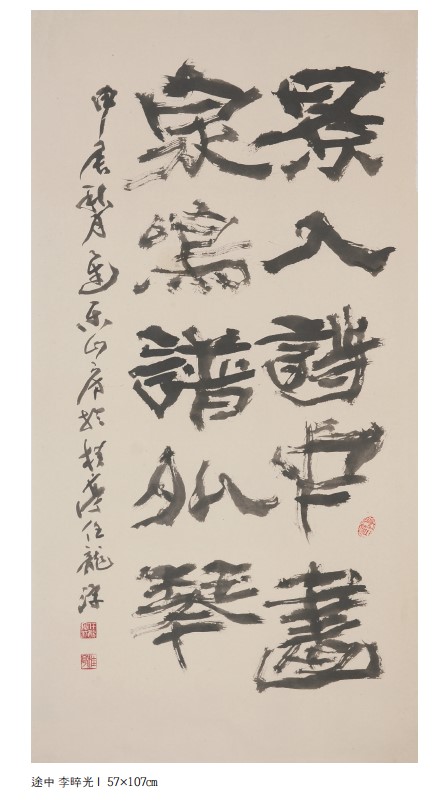 景入詩中畫
泉鳴譜外琴
甲辰秋月 山房 任龍
途中 李晬光 l 57×107㎝